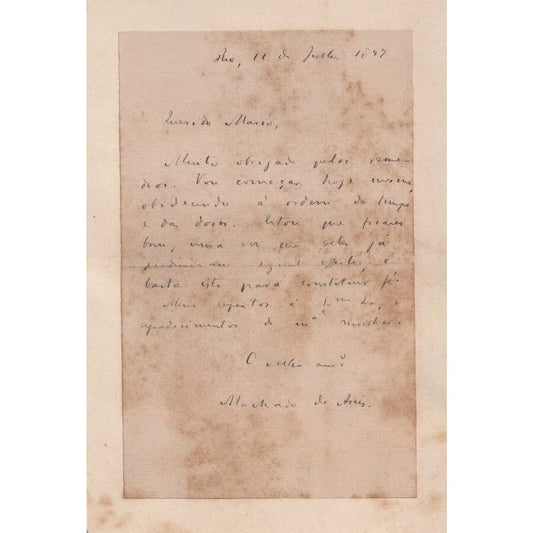 Rio, 11 de Julho 1897
Querido Mario,
Muito obrigado pelos reme-
dios. Vou começar hoje mesmo,
obedecendo á ordem do tempo
e das doses. que ficarei
bom, uma vez que elles já
produziram egual effeito, e
basta isto para constituir fé.
Meus respeitos á e
agradecimentos de m.ª mulher.
O velho am.º
Machado de Assis.